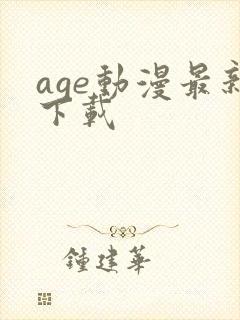 age動漫最新
下載
鍾建華